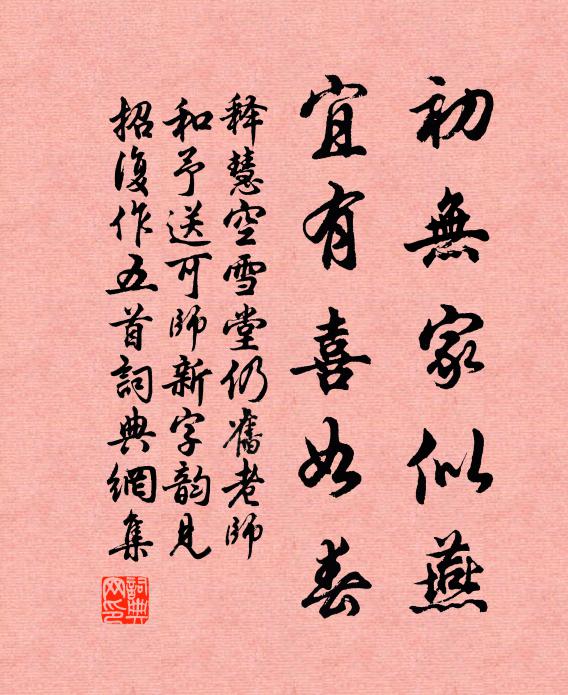 初無家似燕
宜有喜如春
释慧空雪堂仍舊老師
和予送可師新字韵見
招復作五首詞典網集
詞典網印